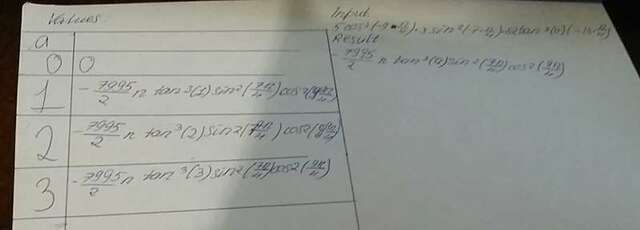 Values
a
0 0
1 -7995/2 π tan³(1) sin²(7π/4) cos²(9π/4)
2 -7995/2 π tan³(2) sin²(7π/4) cos²(9π/4)
3 -7995/2 π tan³(3) sin²(7π/4) cos²(9π/4)
Input
Result
-7995/2 π tan³(a) sin²(7π/4) cos²(9π/4)